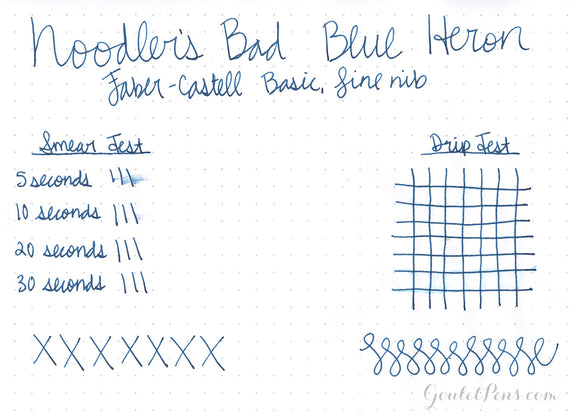 Noodler's Bad Blue Heron
Faber-Castell Basic, fine nib
Smear Test
5 seconds
10 seconds
20 seconds
30 seconds
Drip Test
XXXXXXX
GouletPens.com